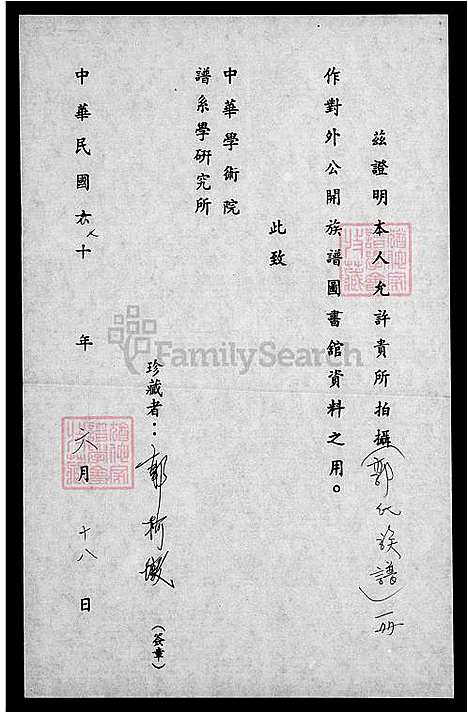 茲證明本人允許貴所拍攝(郭氏族譜)一册
作對外公開族譜圖書館資料之用。
此致
中華學術院
譜系學研究所
珍藏者：郭柯 (簽章)
中華民國六十年六月十八日
FamilySearch